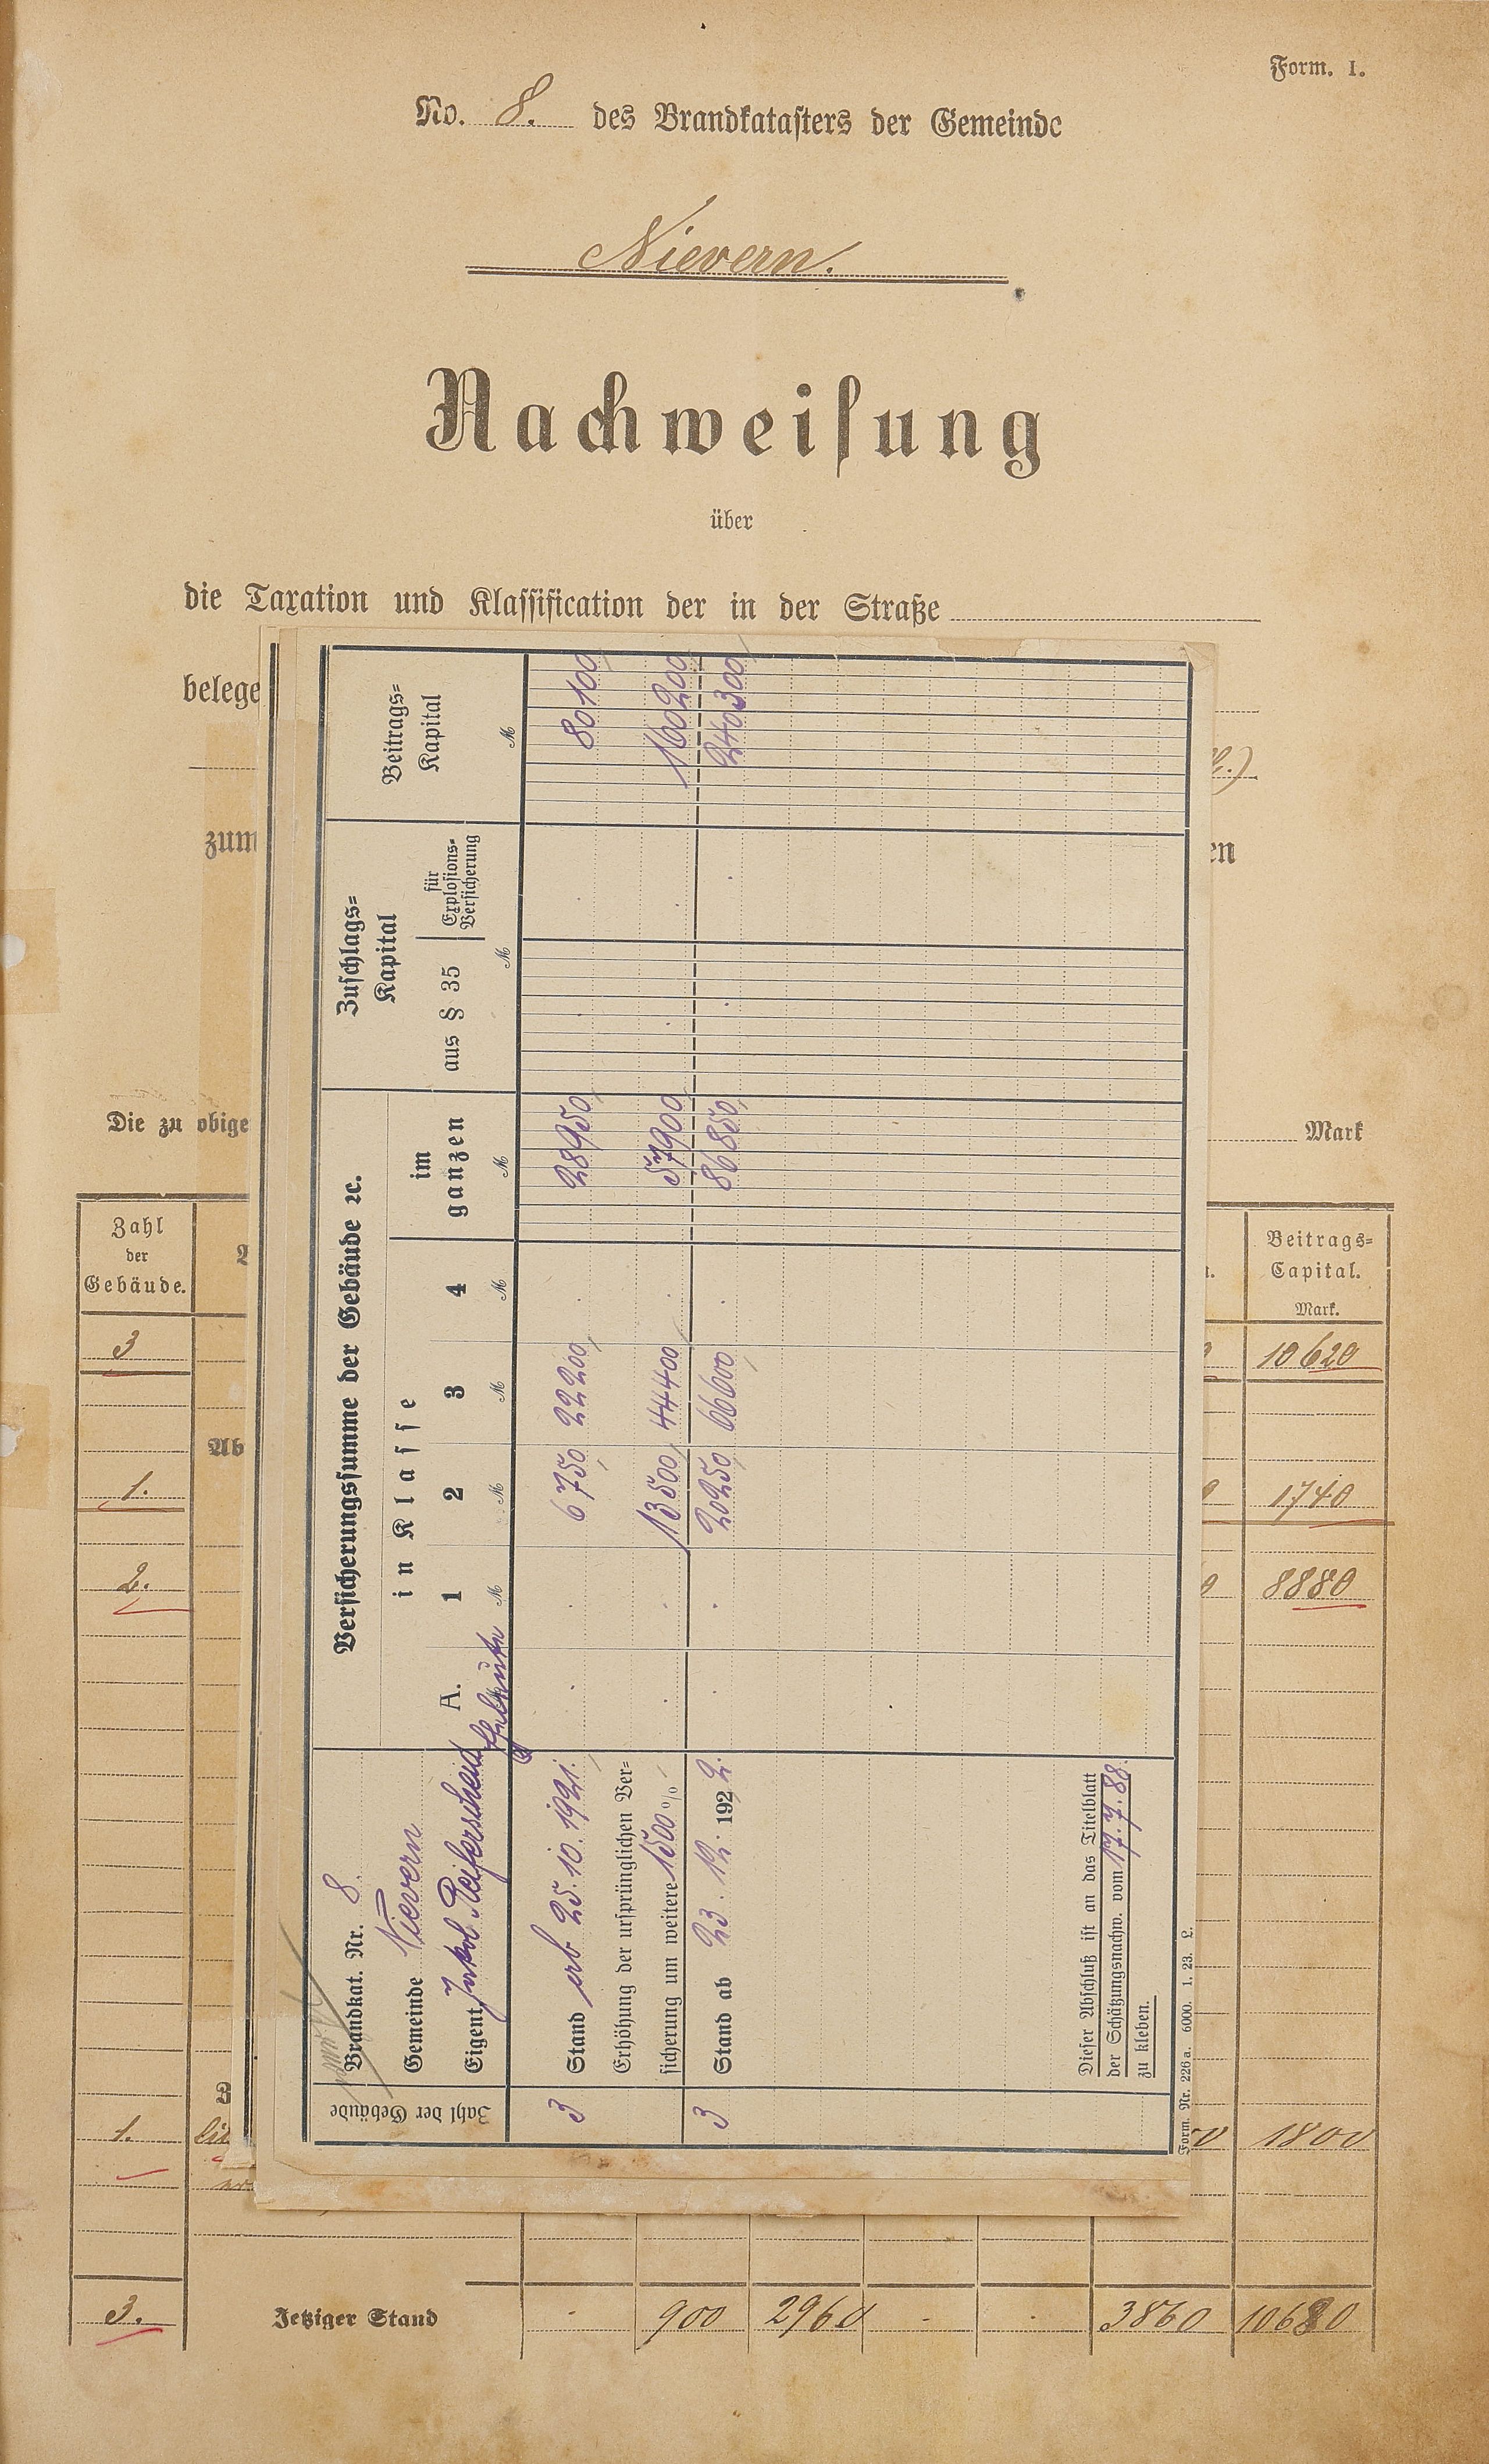 Form. I.
No. 8. des Brandkatasters der Gemeinde
Nievern.
Nachweisung
über
die Taxation und Klassification der in der Straße
belege
zum
en
Die zu obige
Mark
Zahl
der
Gebäude.
Beitrags=
Capital.
Mark.
3 10620
Ab
1. 1740
2. 8880
1. 1800
3. Jetziger Stand . 900 2960 . . 3860 10680
Zahl der Gebäude
Brandkat. Nr. 8.
Gemeinde Nievern
Eigent. Jakob Reiferscheid Eheleute
Versicherungssumme der Gebäude ꝛc.
in Klasse
A. 1 2 3 4
im
ganzen
Zuschlags=
Kapital
aus § 35
für
Explosions-
Versicherung
Beitrags=
Kapital
M M M M M M M
3 Stand ab 25.10.1921. . . 6750 22200 . 28950 . . 80100
Erhöhung der ursprünglichen Ver=
sicherung um weitere 1500 % . . 13500 44400 . 57900 . . 160200
3 Stand ab 23.12.1922. . . 20250 66600 . 86850 . . 240300
Dieser Abschluß ist an das Titelblatt
der Schätzungsnachw. vom 17.7.88.
zu kleben.
Form. Nr. 226a. 6000. 1. 23. L.